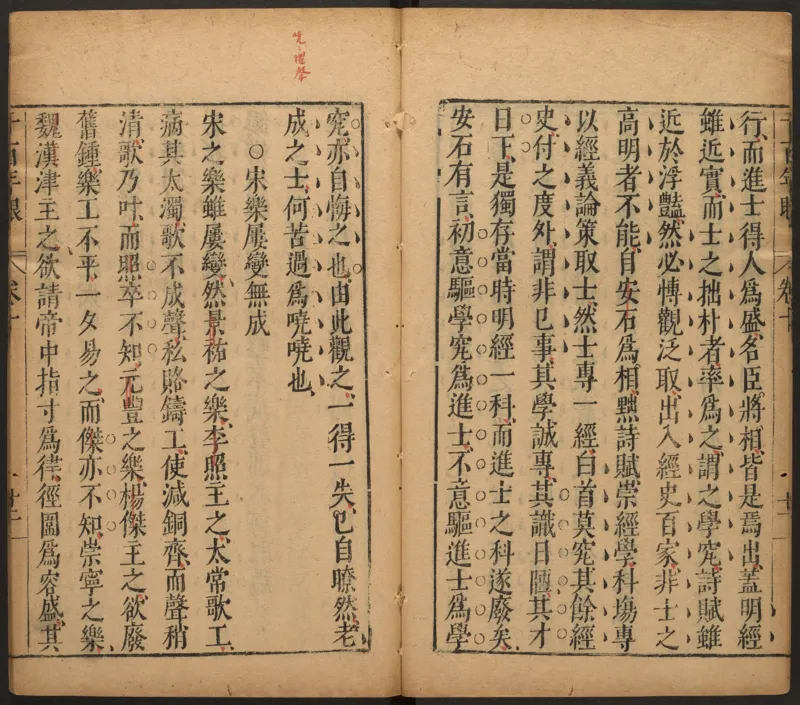 行而進士得人為盛名臣將相皆是焉出蓋明經
雖近實而士之拙朴者率為之謂之學究詩賦雖
近於浮豔然必博觀泛取出入經史百家非士之
高明者不能自安石為相黜詩賦崇經學科場專
以經義論策取士然士專一經白首莫究其餘經
史付之度外謂非已事其學誠專其識日陋其才
日下是獨存當時明經一科而進士之科遂廢矣
安石有言初意驅學究為進士不意驅進士為學
究亦自悔之也由此觀之一得一失已自瞭然老
成之士何苦過為嘵嘵也
○宋樂屢變無成
宋之樂雖屢變然景祐之樂李照主之太常歌工
病其太濁歌不成聲私賂鑄工使減銅齊而聲稍
清歌乃叶而照卒不知元豐之樂楊傑主之欲廢
舊鍾樂工不平一夕易之而傑亦不知崇寧之樂
魏漢津主之欲請帝中指寸為律徑圍為容盛其
千百年眼
卷十
廿二